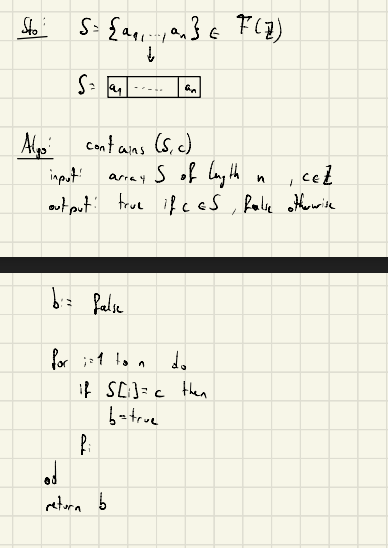 Sto: S = {a1, ..., an} ∈ F(ℤ)
↓
S = a1 ..... an
Algo: contains (S, c)
input: array S of length n , c∈ℤ
output: true if c ∈ S , false otherwise
b := false
for i=1 to n do
if S[i] = c then
b = true
fi
od
return b